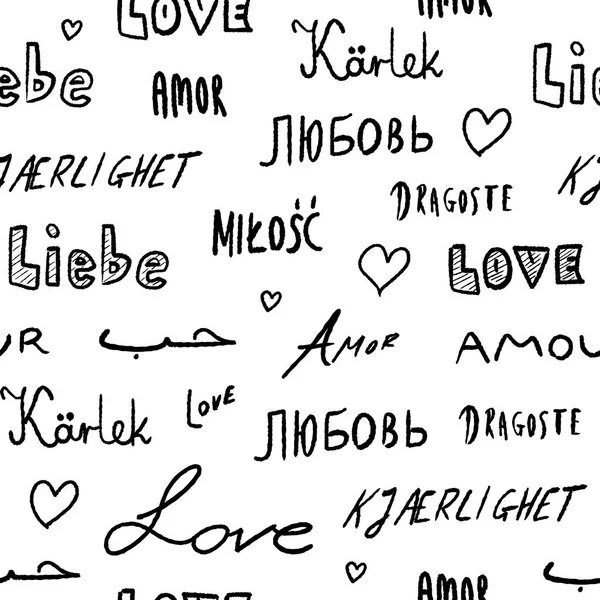 LOVE
AMOR
Kärlek
Liebe
AMOR
Lie
ЛЮБОВЬ
KJÆRLIGHET
KJ
DRAGOSTE
MIŁOŚĆ
Liebe
LOVE
UR
حب
AMOR
AMOU
Kärlek
LOVE
ЛЮБОВЬ
DRAGOSTE
Love
KJÆRLIGHET
LOVE
AMOR